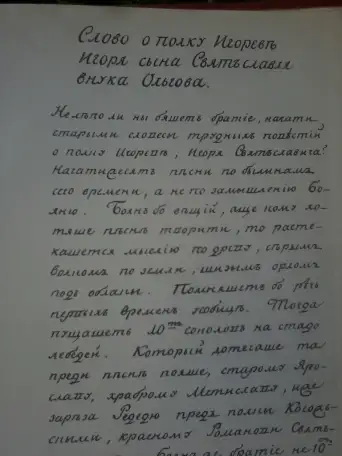 Слово о полку Игоревѣ
Игоря сына Святъславля
внука Ольгова.
Не лѣпо ли ны бяшетъ братіе, начяти
старыми словесы трудныхъ повѣстій
о полку Игоревѣ, Игоря Святъславича!
Начатижесятъ пѣсни по былинамъ
сего времени, а не по замышленію Бо-
яню. Боянъ бо вѣщій, аще кому хо-
тяше пѣснь творити, то расте-
кашется мыслію по древу, сѣрымъ
волкомъ по земли, шизымъ орломъ
подъ облакы. Помняшеть бо рѣчь
первыхъ временъ усобіцѣ. Тогда
пущашетъ 10ть соколовъ на стадо
лебедей. Который дотечаше та
преди пѣснь пояше, старому Яро-
славу, храброму Мстиславу, иже
зарѣза Редедю предъ полкы Касож-
скыми, красному Романови Святъ-
братіе не 10ть